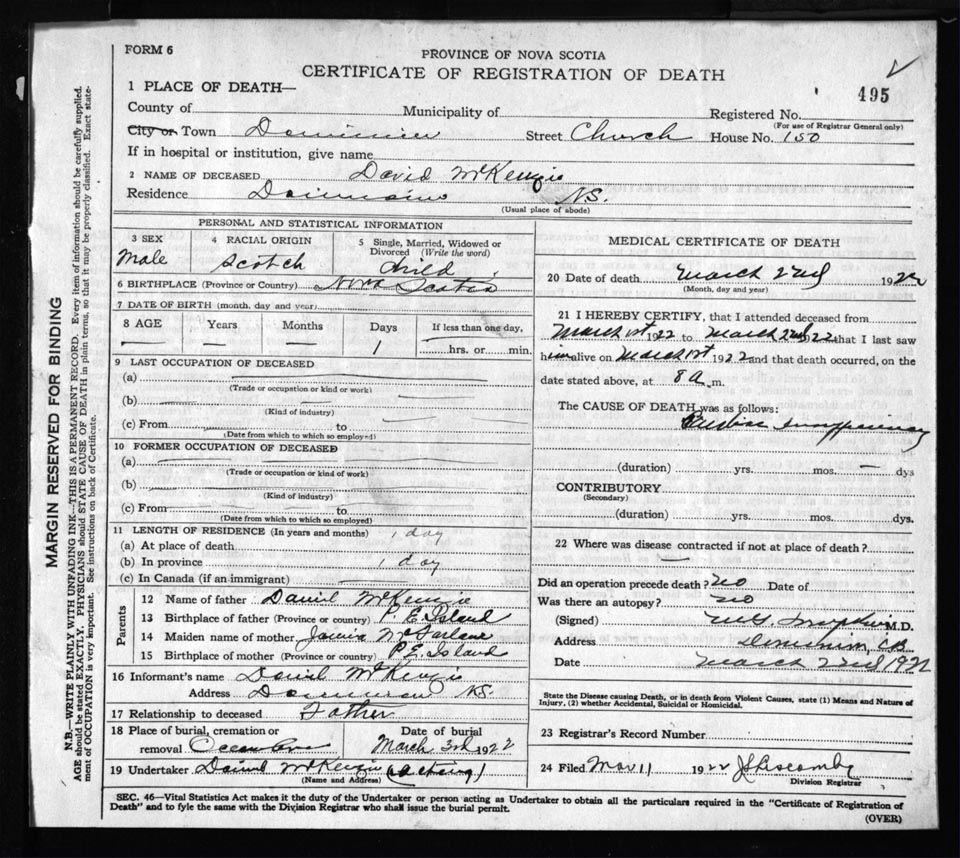 FORM 6
PROVINCE OF NOVA SCOTIA
CERTIFICATE OF REGISTRATION OF DEATH
495
1 PLACE OF DEATH—
County of Municipality of Registered No.
(For use of Registrar General only)
City or Town Dominion Street Church House No. 150
If in hospital or institution, give name
2 NAME OF DECEASED David McKenzie
Residence Dominion N.S.
(Usual place of abode)
PERSONAL AND STATISTICAL INFORMATION
3 SEX 4 RACIAL ORIGIN 5 Single, Married, Widowed or Divorced (Write the word)
Male Scotch Child
6 BIRTHPLACE (Province or Country) Nova Scotia
7 DATE OF BIRTH (month, day and year)
8 AGE Years Months Days If less than one day,
— — — 1 hrs. or min.
9 LAST OCCUPATION OF DECEASED
(a)
(Trade or occupation or kind or work)
(b)
(Kind of industry)
(c) From to
(Date from which to which so employed)
10 FORMER OCCUPATION OF DECEASED
(a)
(Trade or occupation or kind of work)
(b)
(Kind of industry)
(c) From to
(Date from which to which so employed)
11 LENGTH OF RESIDENCE (In years and months) 1 day
(a) At place of death
(b) In province 1 day
(c) In Canada (if an immigrant)
Parents
12 Name of father Daniel McKenzie
13 Birthplace of father (Province or country) P.E. Island
14 Maiden name of mother McFarlane
15 Birthplace of mother (Province or country) P.E. Island
16 Informant's name Daniel McKenzie
Address Dominion NS.
17 Relationship to deceased Father
18 Place of burial, cremation or removal Date of burial
March 3rd 1922
19 Undertaker Daniel McKenzie (acting)
(Name and Address)
MEDICAL CERTIFICATE OF DEATH
20 Date of death March 2nd 1922
(Month, day and year)
21 I HEREBY CERTIFY, that I attended deceased from
March 1st 1922 to March 2nd 1922 that I last saw
him alive on March 1st 1922 and that death occurred, on the
date stated above, at 8 a.m.
The CAUSE OF DEATH was as follows:
(duration) yrs. mos. — dys
CONTRIBUTORY
(Secondary)
(duration) yrs. mos. dys.
22 Where was disease contracted if not at place of death?
—
Did an operation precede death? no Date of
Was there an autopsy? no
(Signed) M.D.
Address Dominion CB
Date March 2nd 1922
State the Disease causing Death, or in death from Violent Causes, state (1) Means and Nature of
Injury, (2) whether Accidental, Suicidal or Homicidal.
23 Registrar's Record Number
24 Filed Mar 11 1922
Division Registrar
SEC. 46—Vital Statistics Act makes it the duty of the Undertaker or person acting as Undertaker to obtain all the particulars required in the "Certificate of Registration of
Death" and to fyle the same with the Division Registrar who shall issue the burial permit.
(OVER)
MARGIN RESERVED FOR BINDING
N.B.—WRITE PLAINLY WITH UNFADING INK—THIS IS A PERMANENT RECORD. Every item of information should be carefully supplied.
AGE should be stated EXACTLY. PHYSICIANS should STATE CAUSE OF DEATH in plain terms, so that it may be properly classified. Exact state-
ment of OCCUPATION is very important. See instructions on back of Certificate.